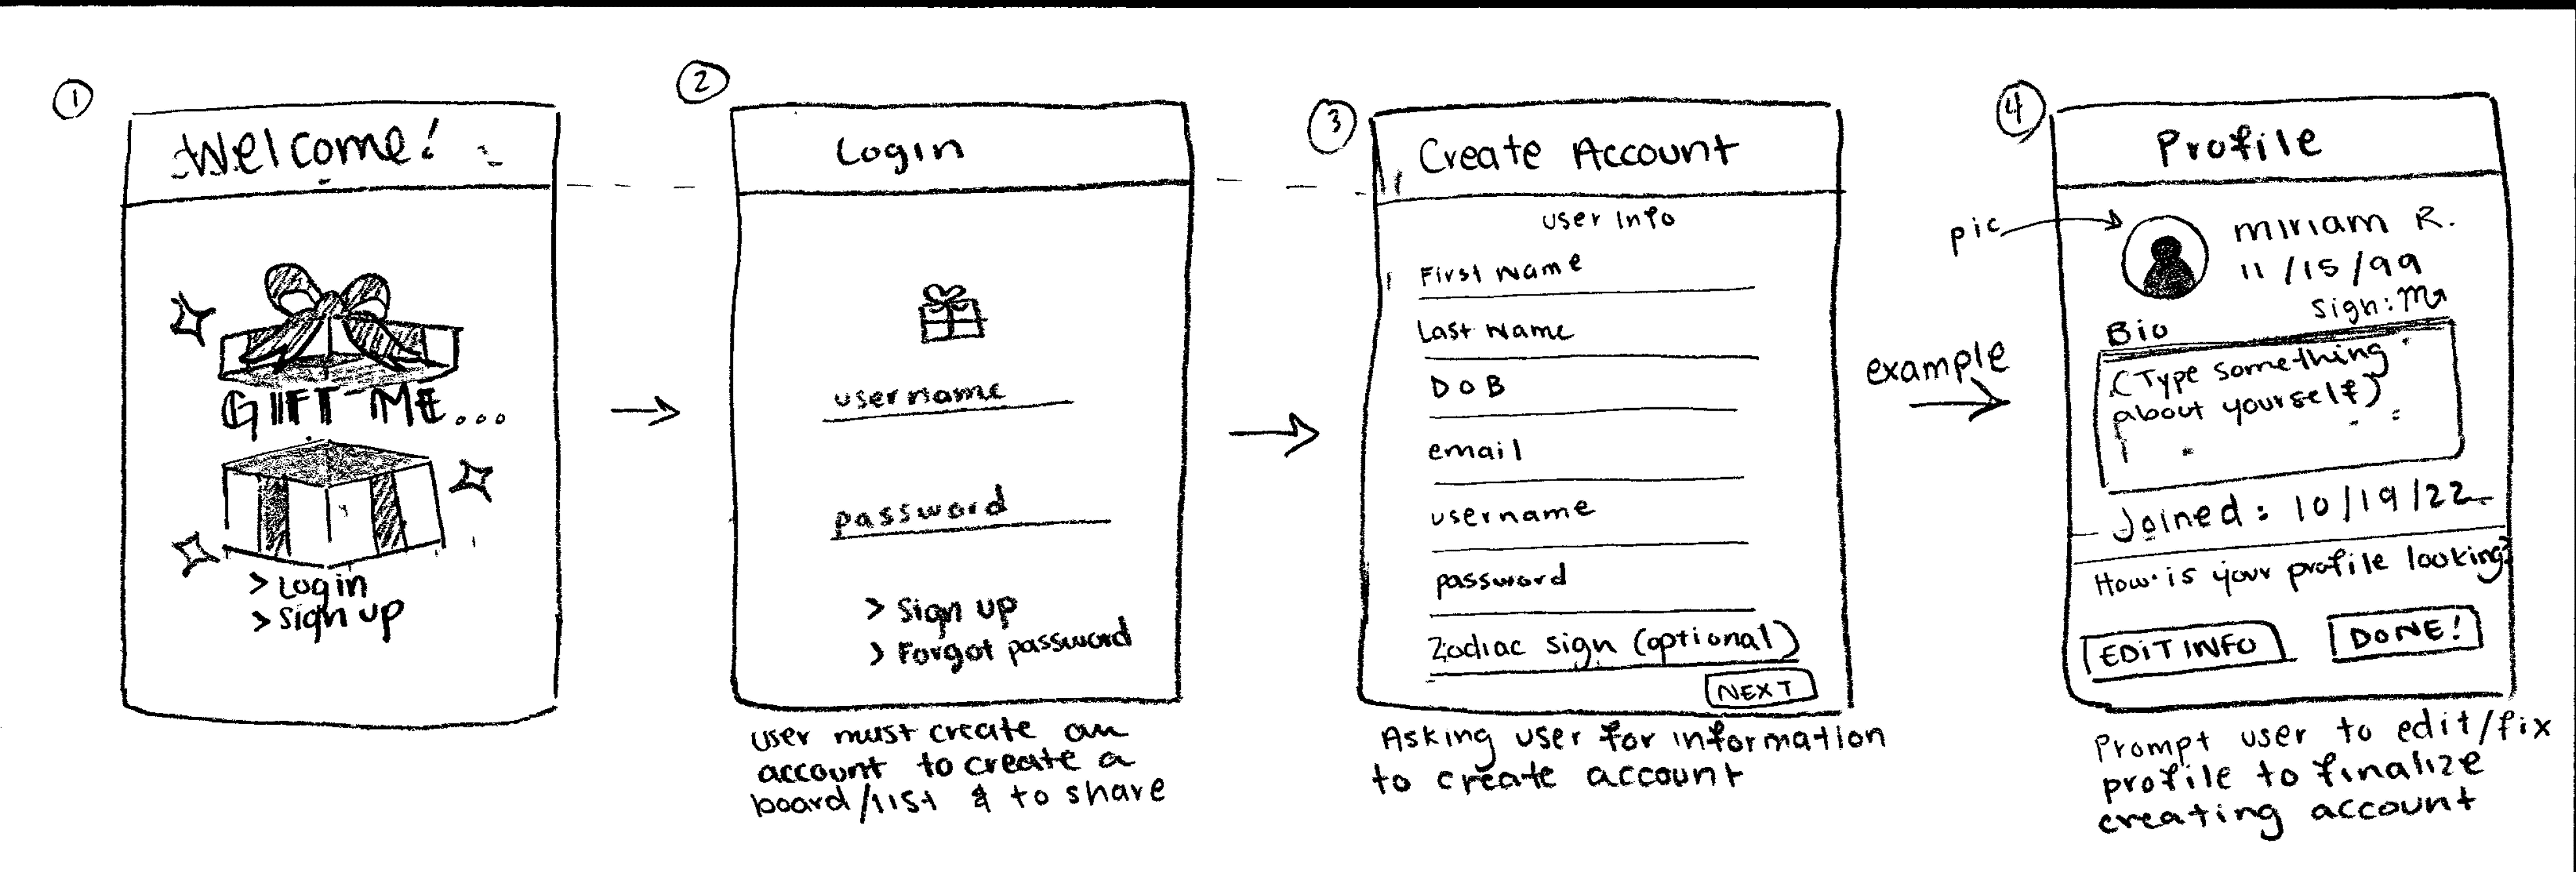 1
Welcome!
GIFT ME...
> Login
> Sign up
2
Login
username
password
> Sign up
> Forgot password
user must create an
account to create a
board/list & to share
3
Create Account
User Info
First Name
Last Name
DOB
email
username
password
Zodiac sign (optional)
NEXT
Asking user for information
to create account
example
4
Profile
pic
miriam R.
11/15/99
Sign: ♏
Bio
(Type something
about yourself)
Joined: 10/19/22
How is your profile looking?
EDIT INFO
DONE!
Prompt user to edit/fix
profile to finalize
creating account